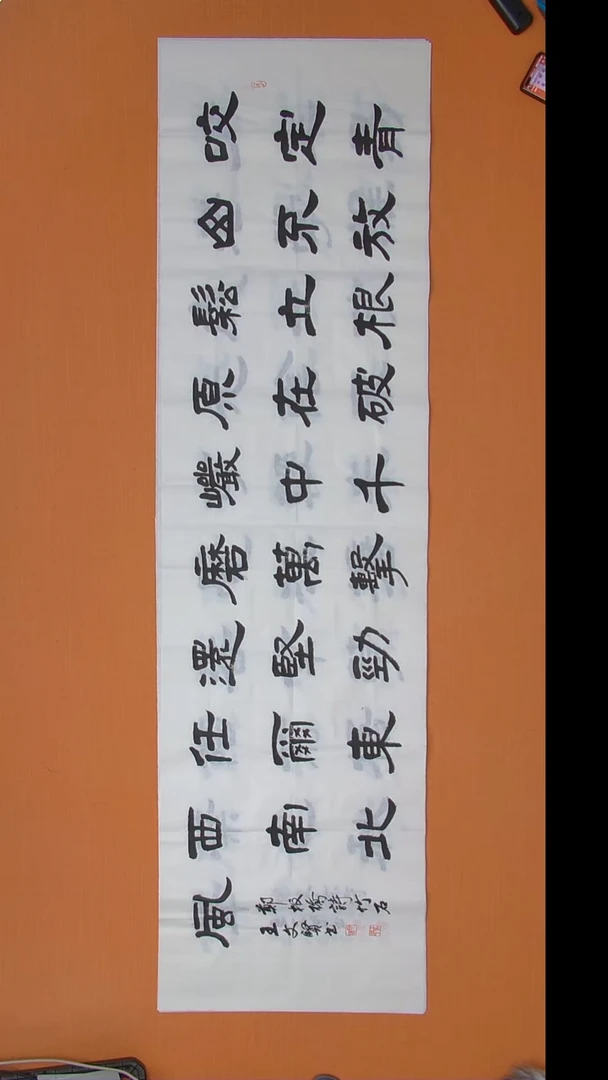 咬定青
山不放
鬆立根
原在破
巖中千
磨萬擊
還堅勁
任爾東
西南北
風
鄭板橋詩竹石
王文賢書